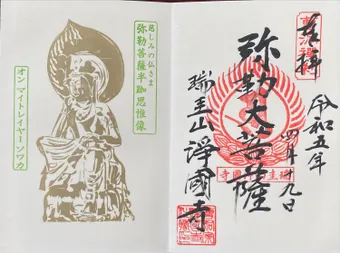 奉拝
令和五年
四月十九日
弥勒大菩薩
瑞王山 淨國寺
慈しみの仏さま
弥勒菩薩半跏思惟像
オン マイトレイヤーソワカ